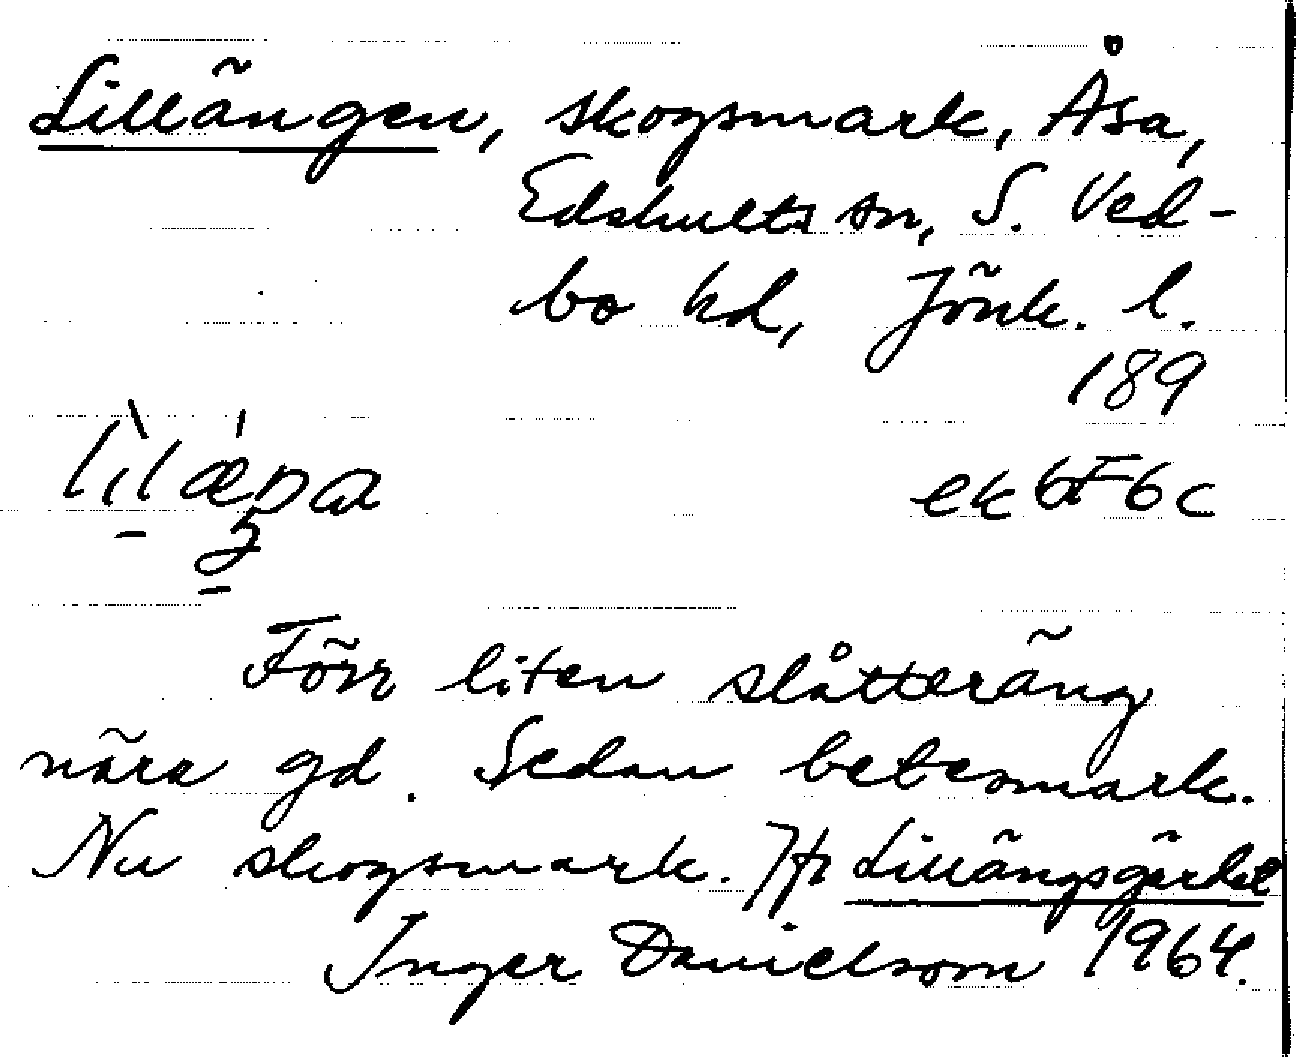 Lillängen, skogsmark, Åsa,
Edshults sn, S. Ved-
bo hd, Jönk. l.
189
ek 6F6c
Förr liten slåtteräng
nära gd. Sedan betesmark.
Nu skogsmark. Jfr Lillängsgärdet
Inger Danielsson 1964.